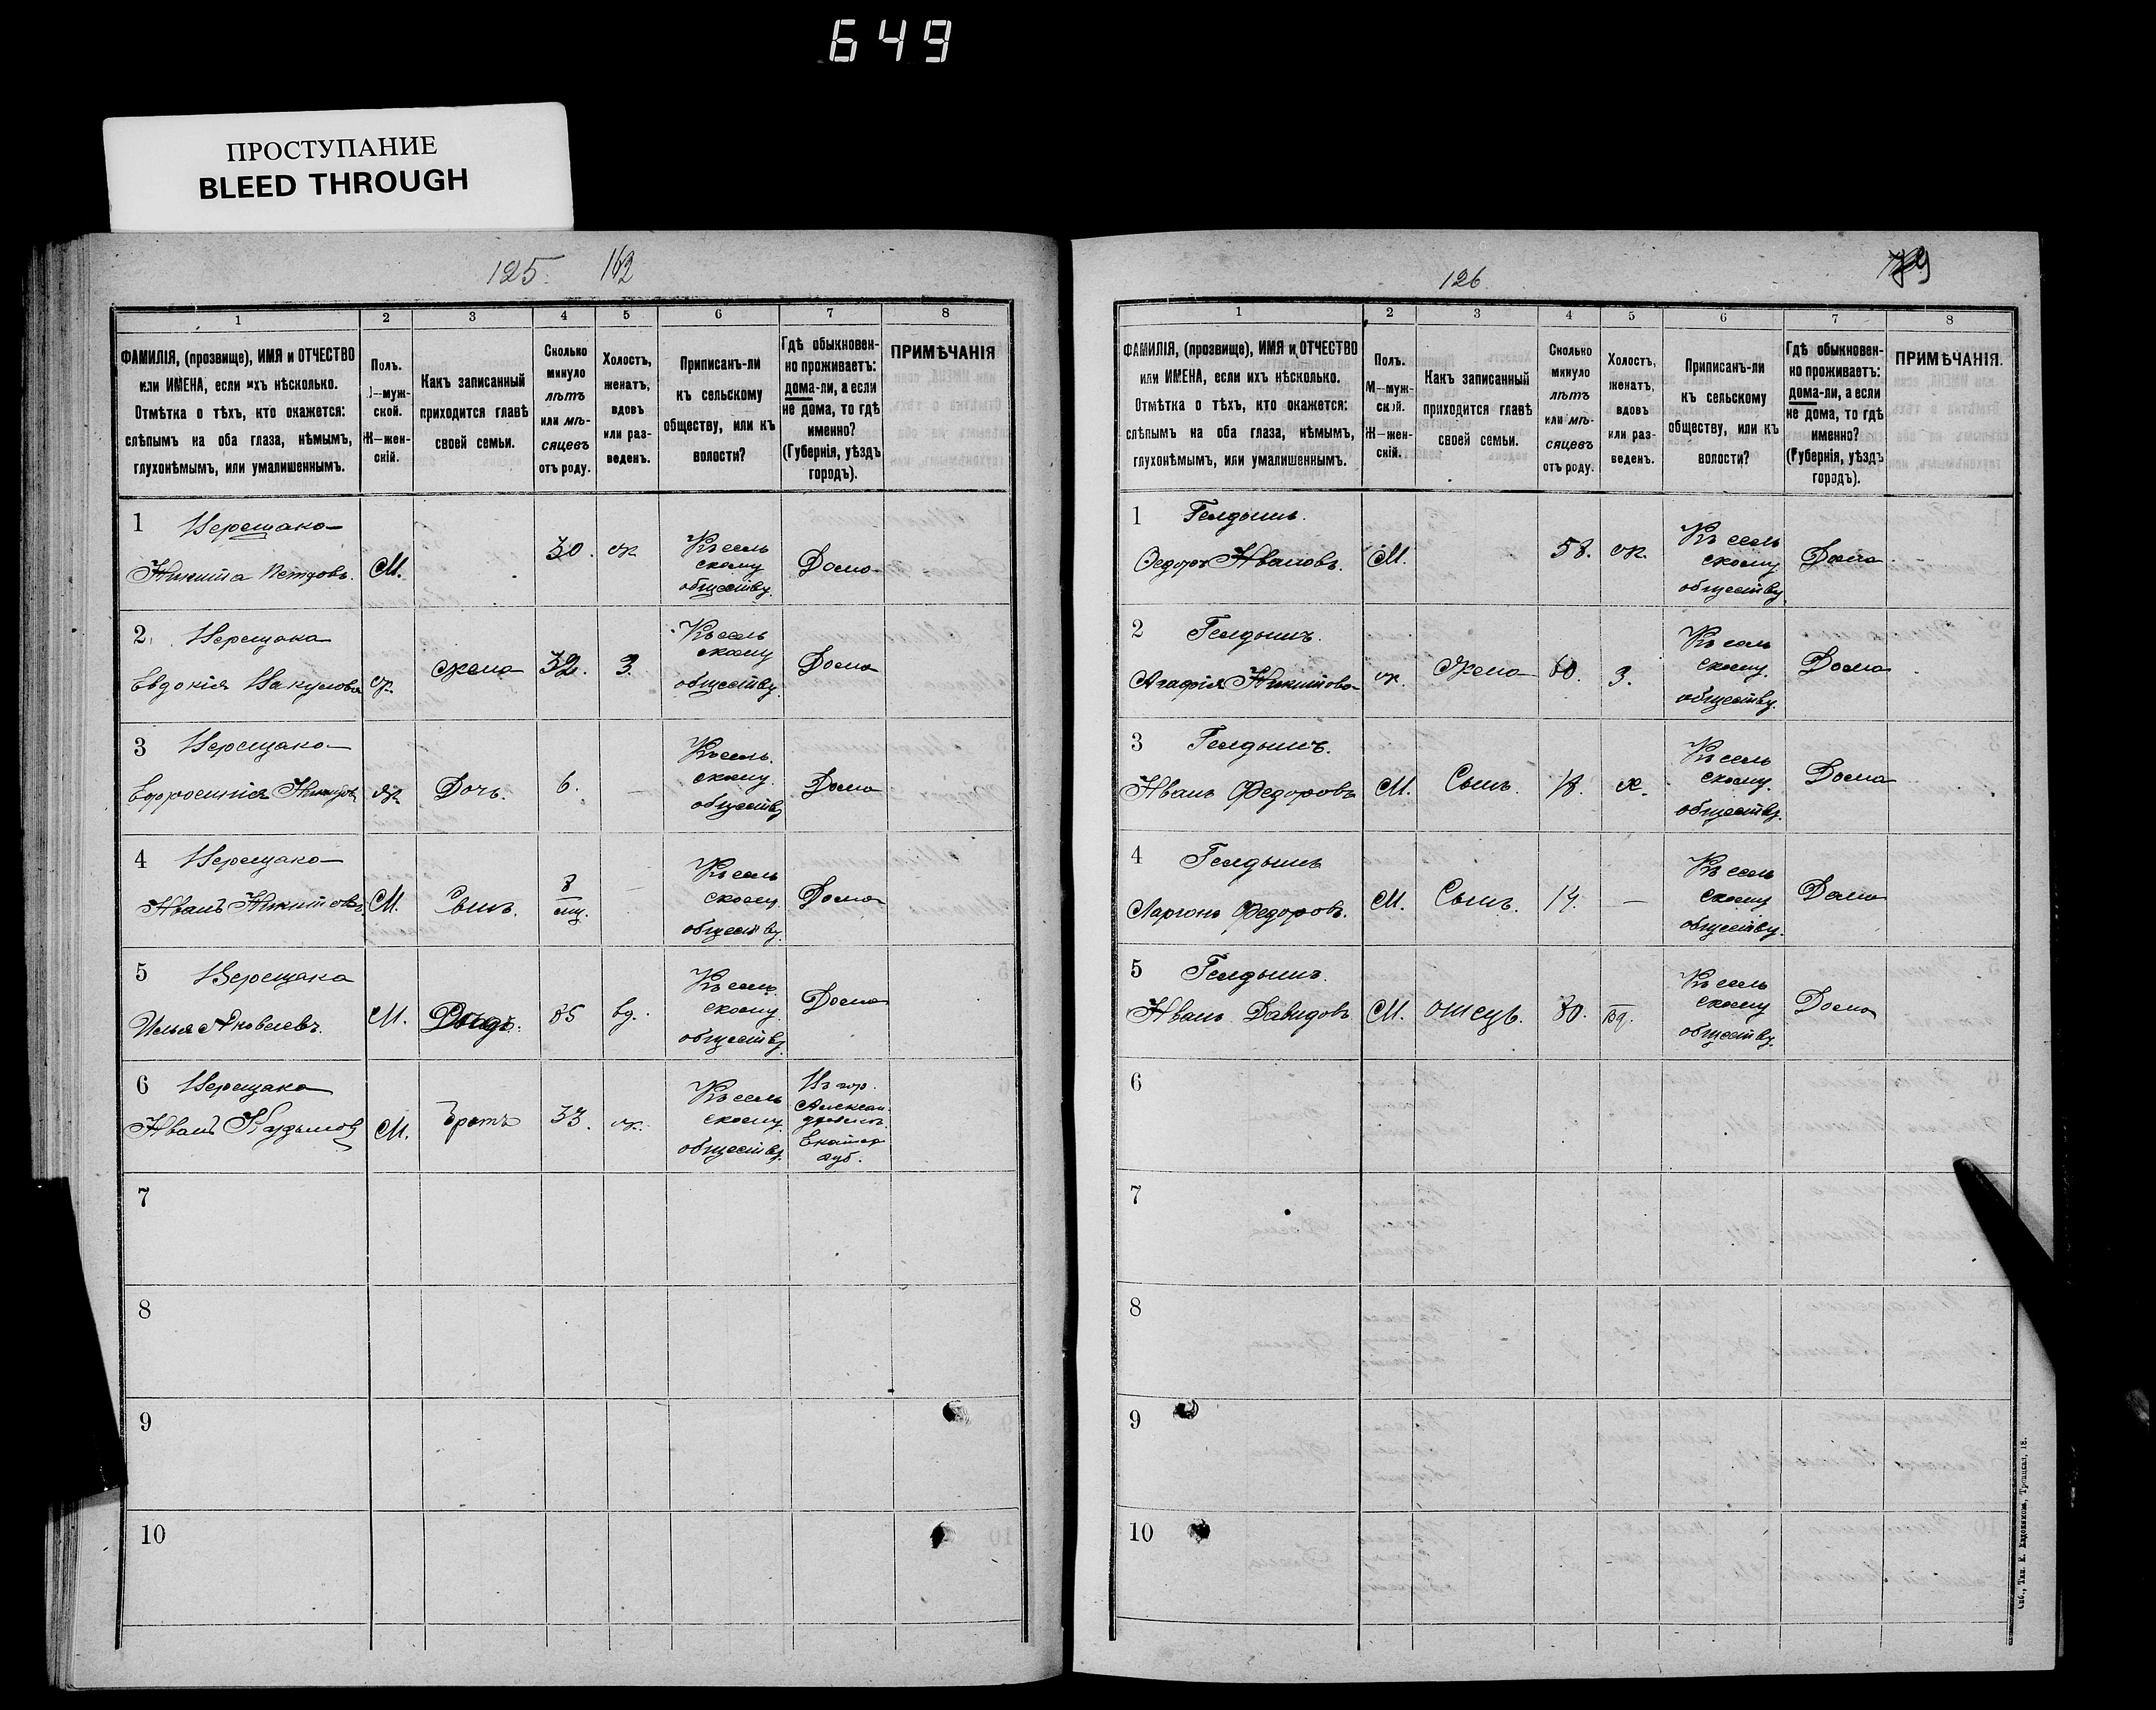 649
ПРОСТУПАНИЕ
BLEED THROUGH
125. 162
1 2 3 4 5 6 7 8
ФАМИЛІЯ, (прозвище), ИМЯ и ОТЧЕСТВО
или ИМЕНА, если ихъ нѣсколько.
Отмѣтка о тѣхъ, кто окажется:
слѣпымъ на оба глаза, нѣмымъ,
глухонѣмымъ, или умалишеннымъ.
Полъ.
М—муж-
ской.
Ж—жен-
скій.
Какъ записанный
приходится главѣ
своей семьи.
Сколько
минуло
лѣтъ
или мѣ-
сяцевъ
отъ роду.
Холостъ,
женатъ,
вдовъ
или раз-
веденъ.
Приписанъ-ли
къ сельскому
обществу, или къ
волости?
Гдѣ обыкновен-
но проживаетъ:
дома-ли, а если
не дома, то гдѣ
именно?
(Губернія, уѣздъ
городъ).
ПРИМѢЧАНІЯ
1 Верещака
Никита Петровъ. М. 30. ж
Къ сель
скому
обществу.
Дома
2 Верещака
Евдокія ж. жена 32. З.
Къ сель
скому
обществу.
Дома
3 Верещака
Ефросинія ж. Дочь. 6. —
Къ сель
скому
обществу
Дома
4 Верещака
Иванъ Никитовъ М. Сынъ. 8
мц. —
Къ сель
скому
обществу.
Дома
5 Верещака
Илья Яковлевъ. М. 85 вд.
Къ сель
скому
обществу
Дома
6 Верещака
Иванъ М. Братъ 33. ж.
Къ сель
скому
обществу.
Въ гор.
Алексан
дровскъ.
Екатер
губ.
7
8
9
10
126.
1 2 3 4 5 6 7 8
ФАМИЛІЯ, (прозвище), ИМЯ и ОТЧЕСТВО
или ИМЕНА, если ихъ нѣсколько.
Отмѣтка о тѣхъ, кто окажется:
слѣпымъ на оба глаза, нѣмымъ,
глухонѣмымъ, или умалишеннымъ.
Полъ.
М—муж-
ской.
Ж—жен-
скій.
Какъ записанный
приходится главѣ
своей семьи.
Сколько
минуло
лѣтъ
или мѣ-
сяцевъ
отъ роду.
Холостъ,
женатъ,
вдовъ
или раз-
веденъ.
Приписанъ-ли
къ сельскому
обществу, или къ
волости?
Гдѣ обыкновен-
но проживаетъ:
дома-ли, а если
не дома, то гдѣ
именно?
(Губернія, уѣздъ
городъ).
ПРИМѢЧАНІЯ.
1 Гелдышъ.
Ѳедоръ Ивановъ. М. 58. ж.
Къ сель
скому
обществу.
Дома
2 Гелдышъ.
Агафія Никитова ж. Жена 60. З.
Къ сель
скому.
обществу.
Дома
3 Гелдышъ.
Иванъ Федоровъ М. Сынъ. 18. х.
Къ сель
скому.
обществу.
Дома
4 Гелдышъ
Ларіонъ Федоровъ. М. Сынъ. 14. —
Къ сель
скому
обществу.
Дома
5 Гелдышъ.
Иванъ Давидовъ М. отецъ. 80. вд.
Къ сель
скому
обществу.
Дома
6
7
8
9
10
Спб., Тип. Е. Евдокимова, Троицкая, 18.